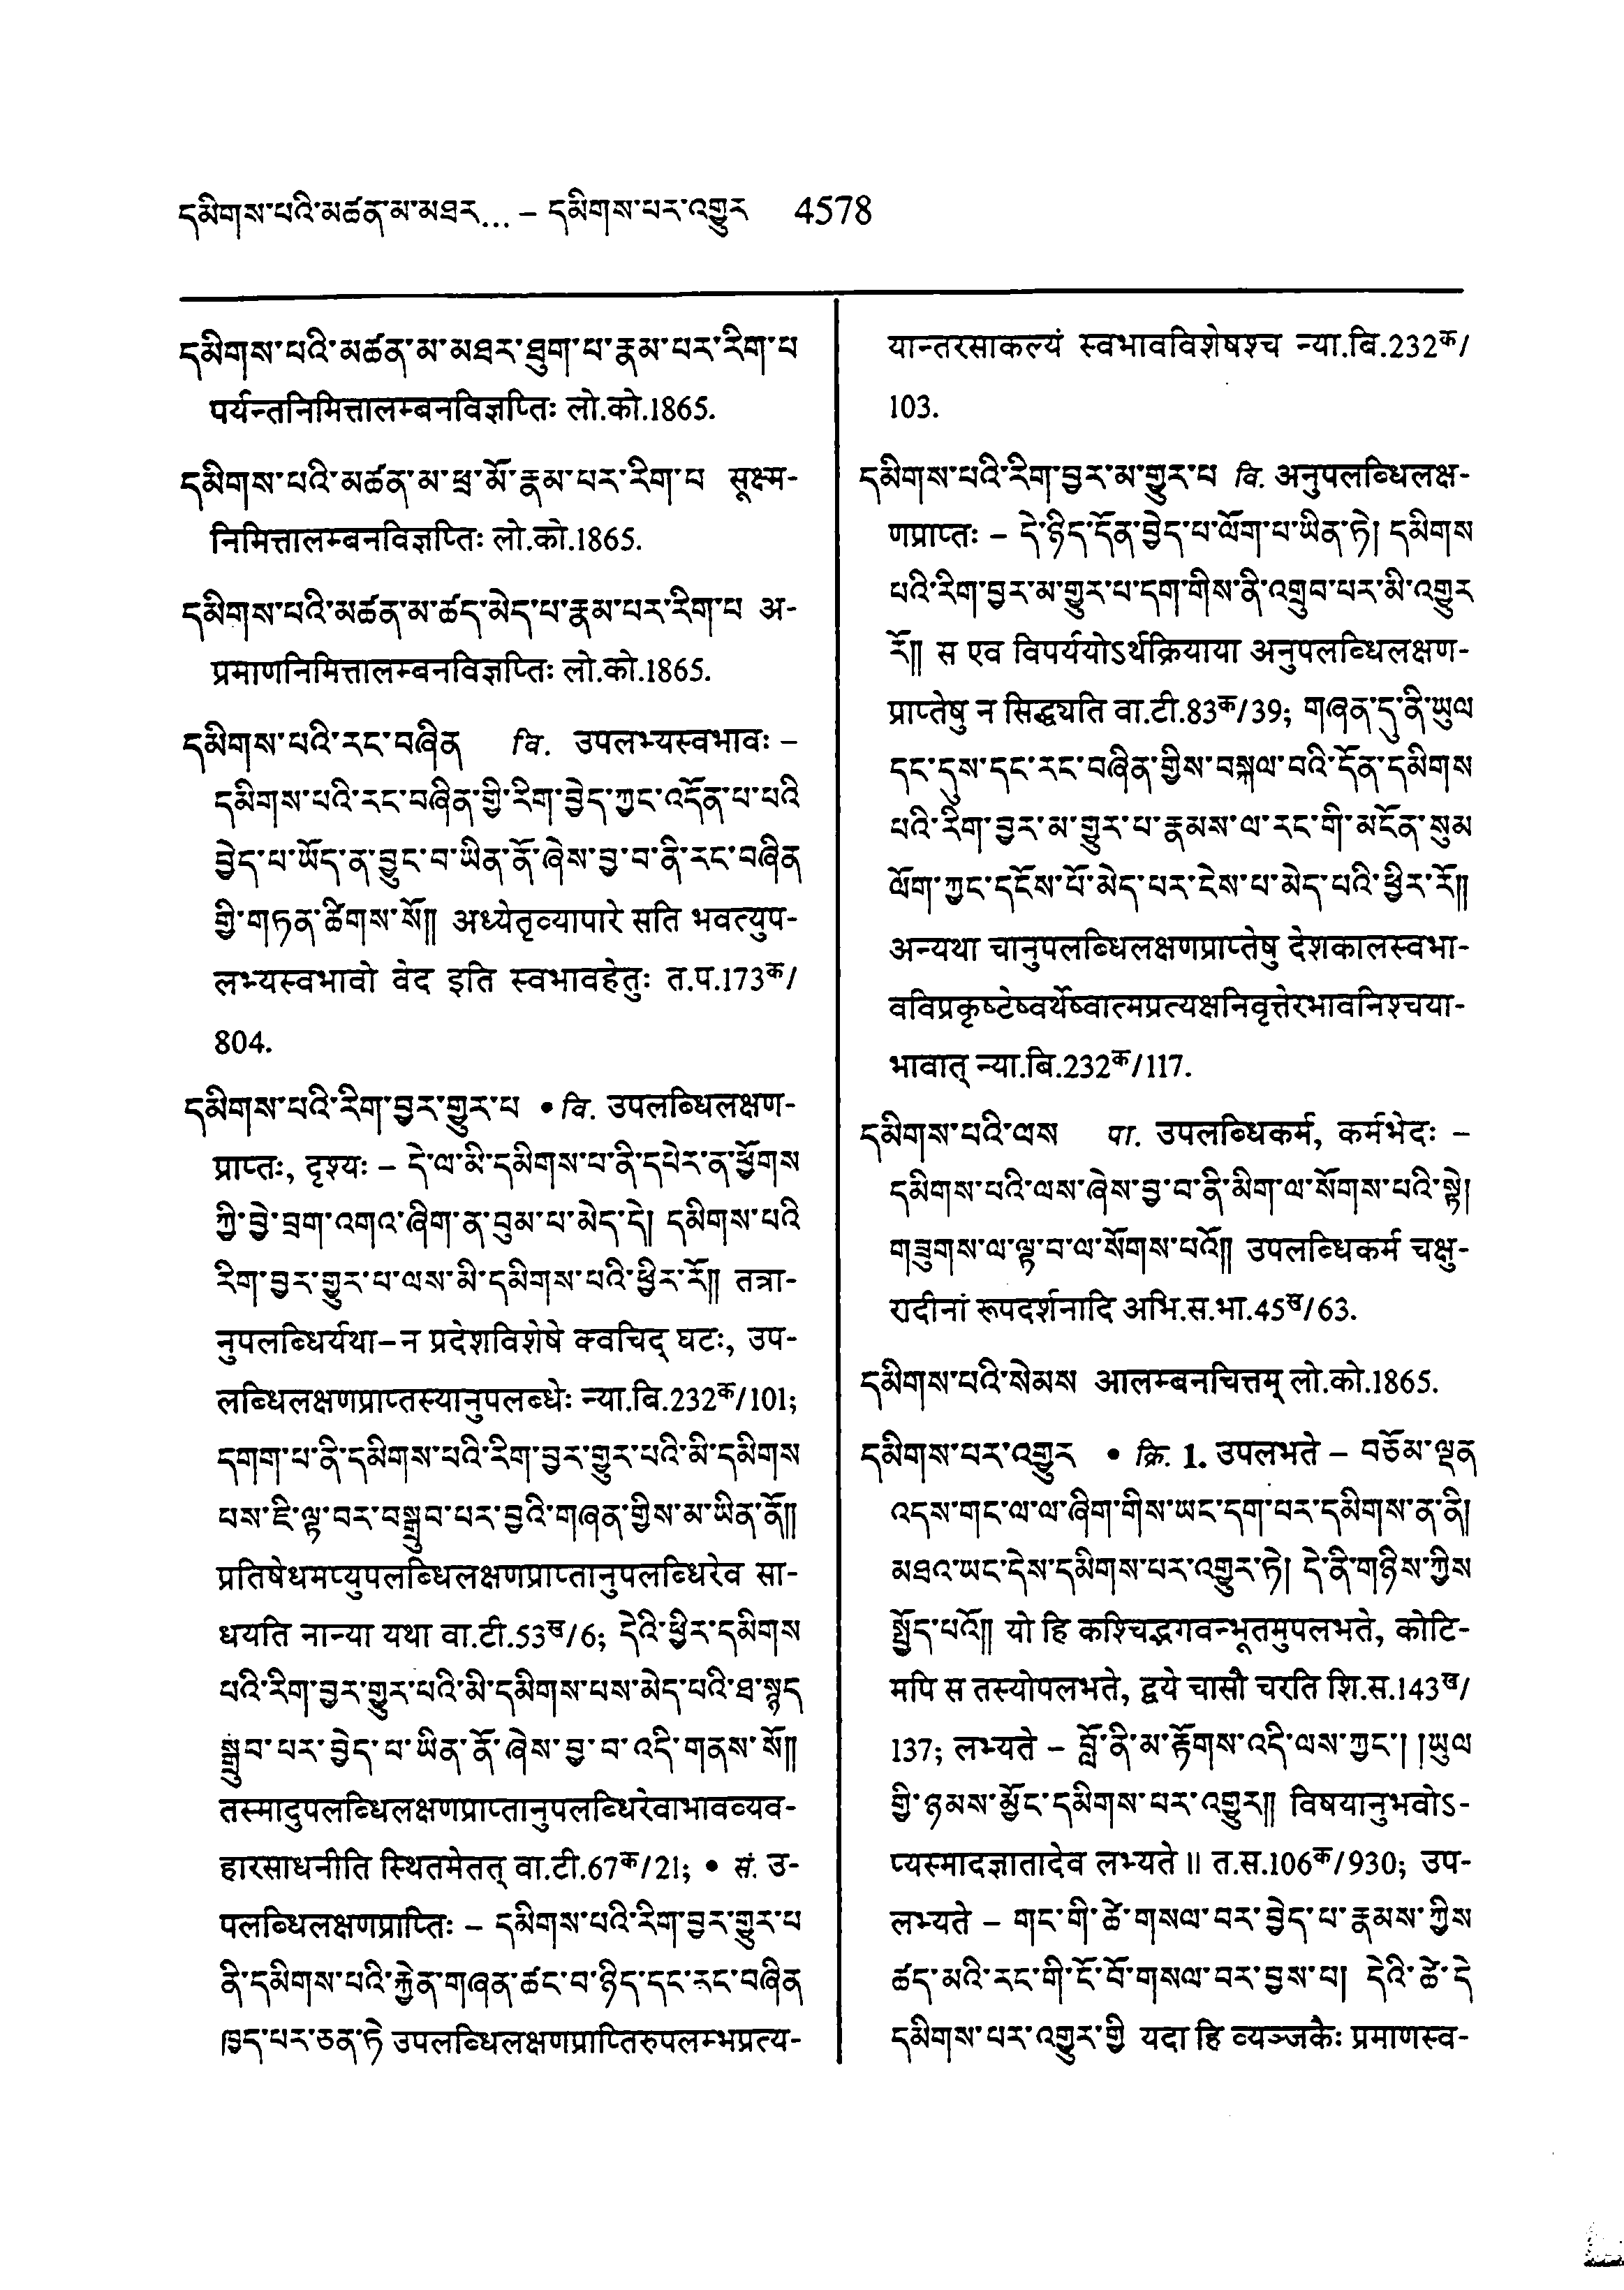 དམིགས་པའི་མཚན་མ་མཐར... – དམིགས་པར་འགྱུར 4578
དམིགས་པའི་མཚན་མ་མཐར་ཐུག་པ་རྣམ་པར་རིག་པ
पर्यन्तनिमित्तालम्बनविज्ञप्तिः लो.को.1865.
དམིགས་པའི་མཚན་མ་ཕྲ་མོ་རྣམ་པར་རིག་པ सूक्ष्म-
निमित्तालम्बनविज्ञप्तिः लो.को.1865.
དམིགས་པའི་མཚན་མ་ཚད་མེད་པ་རྣམ་པར་རིག་པ अ-
प्रमाणनिमित्तालम्बनविज्ञप्तिः लो.को.1865.
དམིགས་པའི་རང་བཞིན वि. उपलभ्यस्वभावः –
དམིགས་པའི་རང་བཞིན་གྱི་རིག་བྱེད་ཀྱང་འདོན་པ་པའི
བྱེད་པ་ཡོད་ན་བྱུང་བ་ཡིན་ནོ་ཞེས་བྱ་བ་ནི་རང་བཞིན
གྱི་གཏན་ཚིགས་སོ༎ अध्येतृव्यापारे सति भवत्युप-
लभ्यस्वभावो वेद इति स्वभावहेतुः त.प.173क/
804.
དམིགས་པའི་རིག་བྱར་གྱུར་པ • वि. उपलब्धिलक्षण-
प्राप्तः, दृश्यः – དེ་ལ་མི་དམིགས་པ་ནི་དཔེར་ན་ཕྱོགས
ཀྱི་བྱེ་བྲག་འགའ་ཞིག་ན་བུམ་པ་མེད་དེ། དམིགས་པའི
རིག་བྱར་གྱུར་པ་ལས་མི་དམིགས་པའི་ཕྱིར་རོ༎ तत्रा-
नुपलब्धिर्यथा–न प्रदेशविशेषे क्वचिद् घटः, उप-
लब्धिलक्षणप्राप्तस्यानुपलब्धेः न्या.बि.232क/101;
དགག་པ་ནི་དམིགས་པའི་རིག་བྱར་གྱུར་པའི་མི་དམིགས
པས་ཇི་ལྟ་བར་བསྒྲུབ་པར་བྱའི་གཞན་གྱིས་མ་ཡིན་ནོ༎
प्रतिषेधमप्युपलब्धिलक्षणप्राप्तानुपलब्धिरेव सा-
धयति नान्या यथा वा.टी.53ख/6; དེའི་ཕྱིར་དམིགས
པའི་རིག་བྱར་གྱུར་པའི་མི་དམིགས་པས་མེད་པའི་ཐ་སྙད
སྒྲུབ་པར་བྱེད་པ་ཡིན་ནོ་ཞེས་བྱ་བ་འདི་གནས་སོ༎
तस्मादुपलब्धिलक्षणप्राप्तानुपलब्धिरेवाभावव्यव-
हारसाधनीति स्थितमेतत् वा.टी.67क/21; • सं. उ-
पलब्धिलक्षणप्राप्तिः – དམིགས་པའི་རིག་བྱར་གྱུར་པ
ནི་དམིགས་པའི་རྐྱེན་གཞན་ཚང་བ་ཉིད་དང་རང་བཞིན
ཁྱད་པར་ཅན་ཏེ उपलब्धिलक्षणप्राप्तिरुपलम्भप्रत्य-
यान्तरसाकल्यं स्वभावविशेषश्च न्या.बि.232क/
103.
དམིགས་པའི་རིག་བྱར་མ་གྱུར་པ वि. अनुपलब्धिलक्ष-
णप्राप्तः – དེ་ཉིད་དོན་བྱེད་པ་ལོག་པ་ཡིན་ཏེ། དམིགས
པའི་རིག་བྱར་མ་གྱུར་པ་དག་གིས་ནི་འགྲུབ་པར་མི་འགྱུར
རོ༎ स एव विपर्ययोऽर्थक्रियाया अनुपलब्धिलक्षण-
प्राप्तेषु न सिद्ध्यति वा.टी.83क/39; གཞན་དུ་ནི་ཡུལ
དང་དུས་དང་རང་བཞིན་གྱིས་བསྐལ་བའི་དོན་དམིགས
པའི་རིག་བྱར་མ་གྱུར་པ་རྣམས་ལ་རང་གི་མངོན་སུམ
ལོག་ཀྱང་དངོས་པོ་མེད་པར་ངེས་པ་མེད་པའི་ཕྱིར་རོ༎
अन्यथा चानुपलब्धिलक्षणप्राप्तेषु देशकालस्वभा-
वविप्रकृष्टेष्वर्थेष्वात्मप्रत्यक्षनिवृत्तेरभावनिश्चया-
भावात् न्या.बि.232क/117.
དམིགས་པའི་ལས पा. उपलब्धिकर्म, कर्मभेदः –
དམིགས་པའི་ལས་ཞེས་བྱ་བ་ནི་མིག་ལ་སོགས་པའི་སྟེ།
གཟུགས་ལ་ལྟ་བ་ལ་སོགས་པའོ༎ उपलब्धिकर्म चक्षु-
रादीनां रूपदर्शनादि अभि.स.भा.45ख/63.
དམིགས་པའི་སེམས आलम्बनचित्तम् लो.को.1865.
དམིགས་པར་འགྱུར • क्रि. 1. उपलभते – བཅོམ་ལྡན
འདས་གང་ལ་ལ་ཞིག་གིས་ཡང་དག་པར་དམིགས་ན་ནི།
མཐའ་ཡང་དེས་དམིགས་པར་འགྱུར་ཏེ། དེ་ནི་གཉིས་ཀྱིས
སྤྱོད་པའོ༎ यो हि कश्चिद्भगवन्भूतमुपलभते, कोटि-
मपि स तस्योपलभते, द्वये चासौ चरति शि.स.143ख/
137; लभ्यते – བློ་ནི་མ་རྟོགས་འདི་ལས་ཀྱང་། །ཡུལ
གྱི་ཉམས་མྱོང་དམིགས་པར་འགྱུར༎ विषयानुभवोऽ-
प्यस्मादज्ञातादेव लभ्यते॥ त.स.106क/930; उप-
लभ्यते – གང་གི་ཚེ་གསལ་བར་བྱེད་པ་རྣམས་ཀྱིས
ཚད་མའི་རང་གི་ངོ་བོ་གསལ་བར་བྱས་པ། དེའི་ཚེ་དེ
དམིགས་པར་འགྱུར་གྱི यदा हि व्यञ्जकैः प्रमाणस्व-